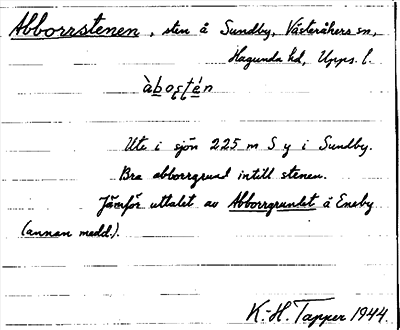 Abborrstenen, sten å Sundby, Västeråkers sn,
Hagunda hd, Upps. l.
àbostén
Ute i sjön 225 m S y i Sundby.
Bra abborrgrund intill stenen.
Jämför uttalet av Abborrgrundet å Eneby
(annan medd.).
K.-H. Tapper 1944.